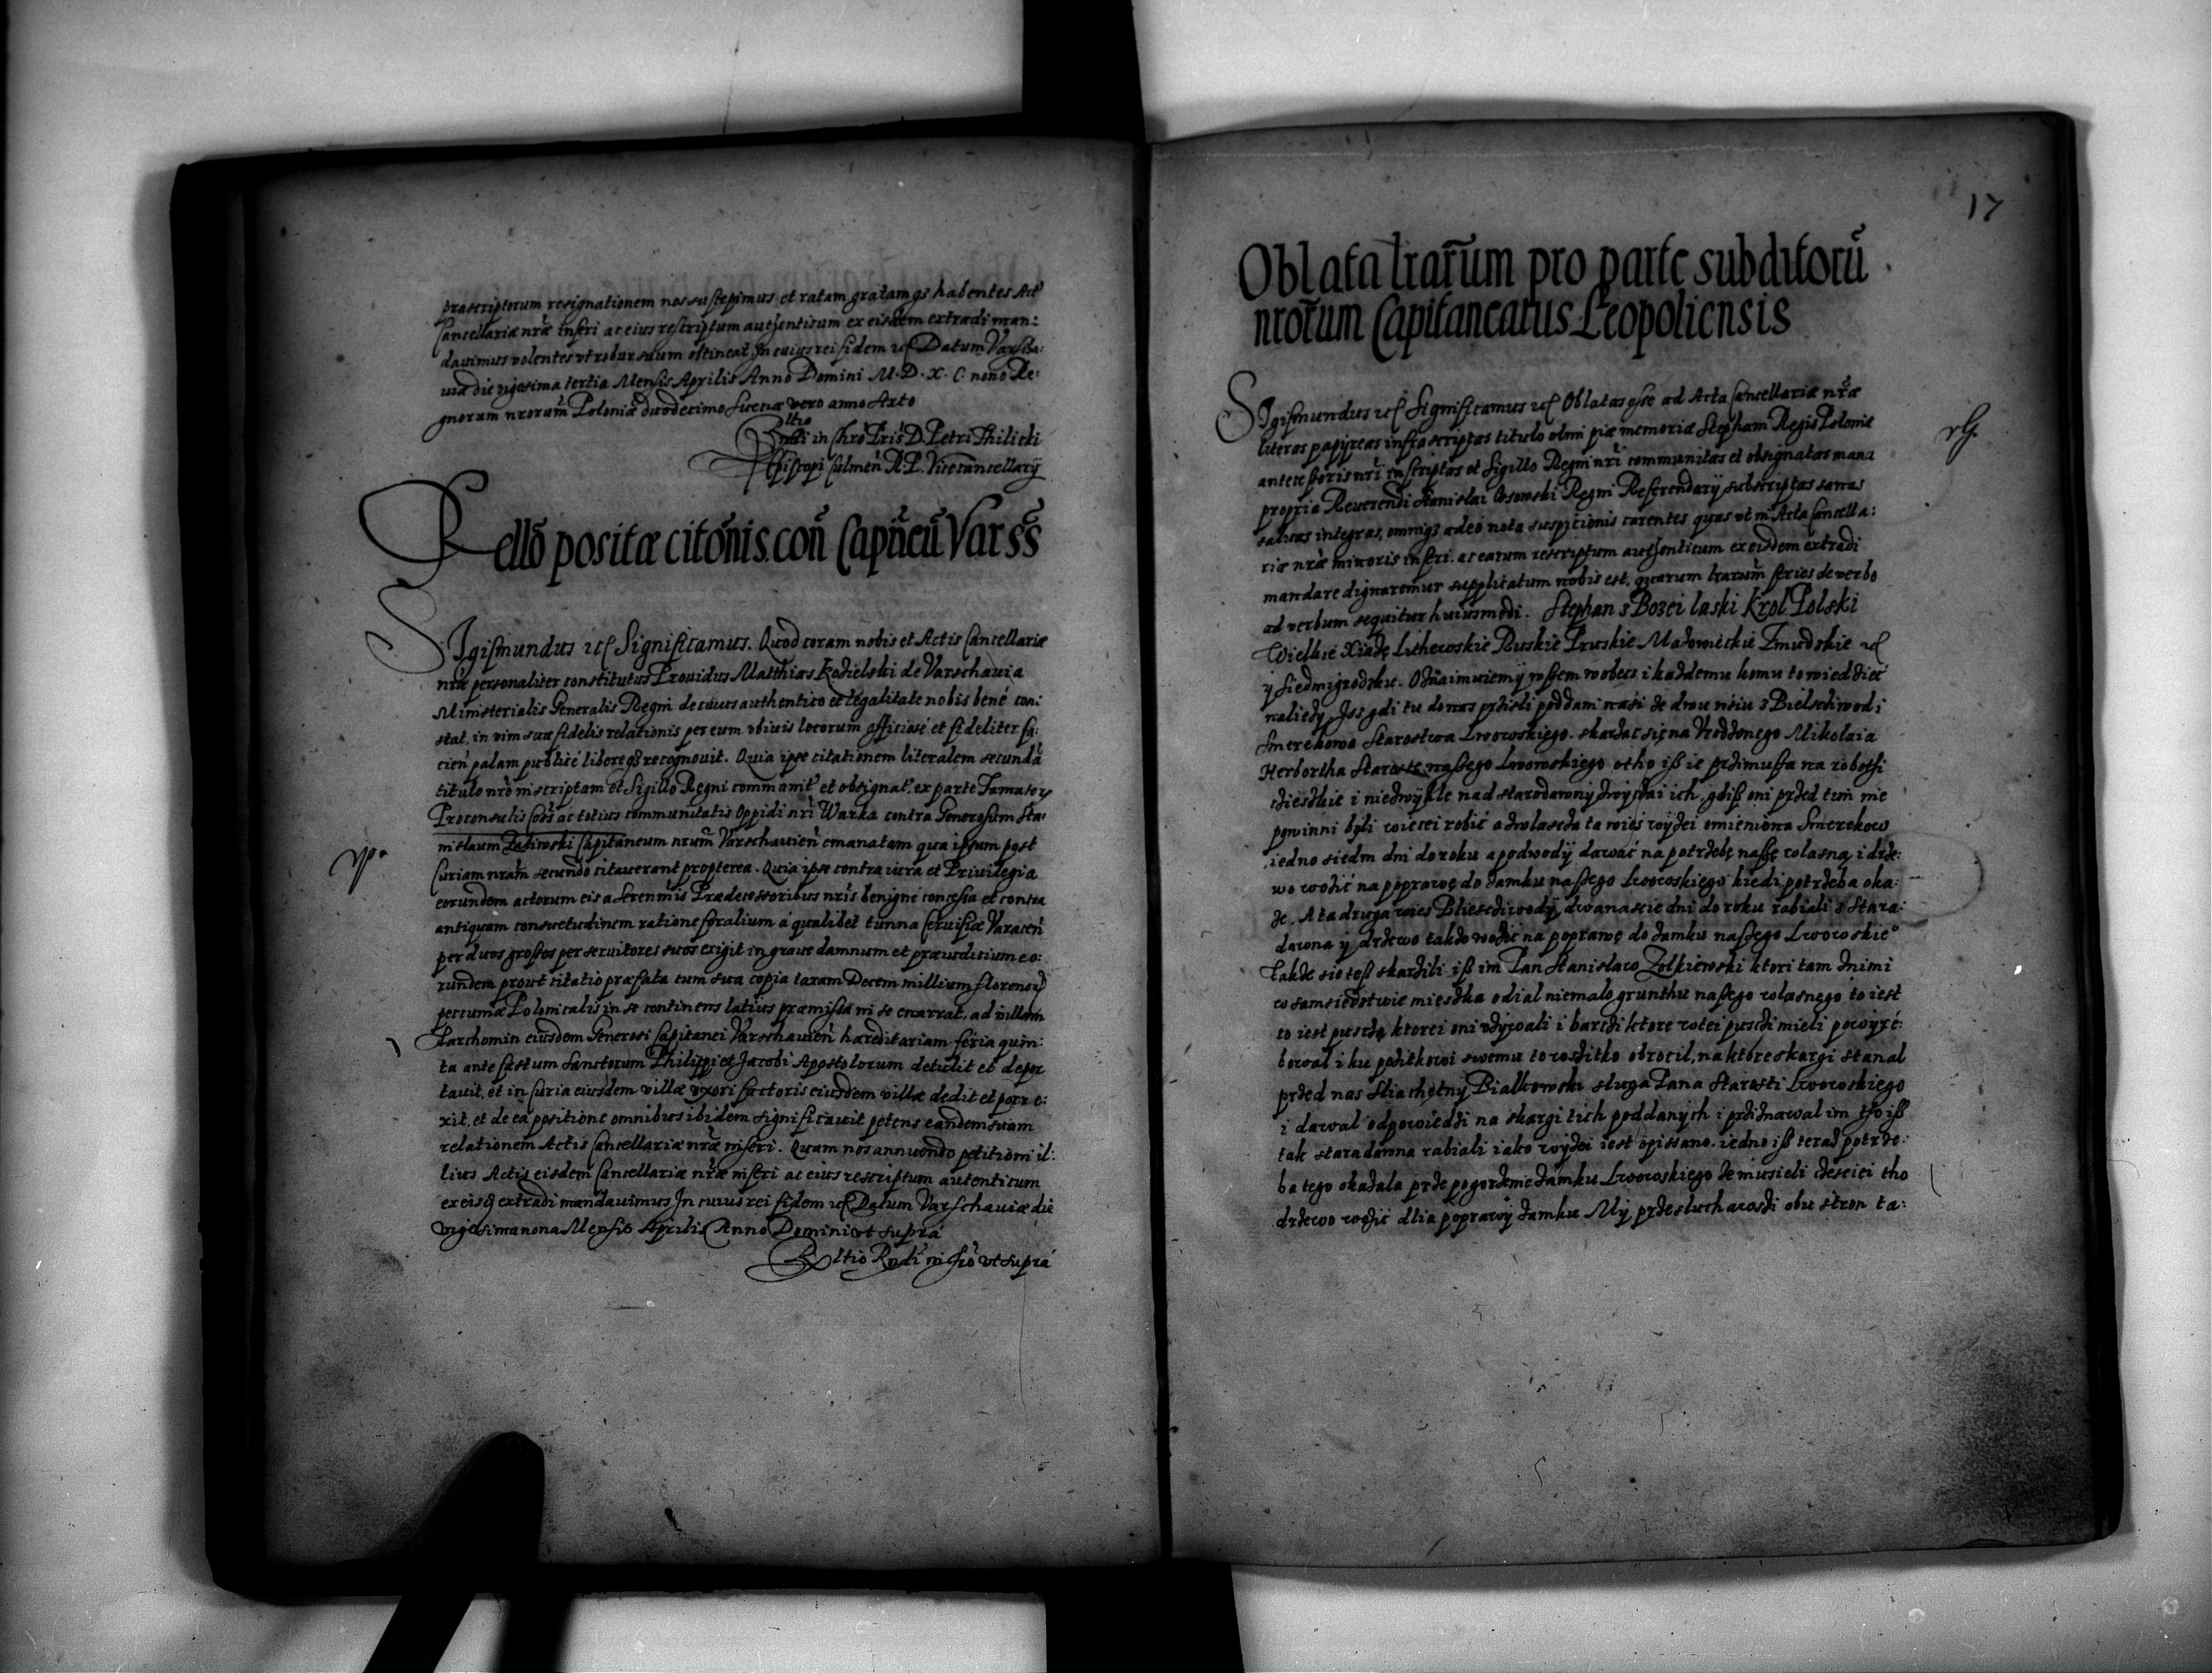 praescriptorum resignationem nos suscepimus et ratam gratamq3 habentes Act
Cancellariæ nræ inseri ac eius rescriptum authenticum ex eisdem extradi man:
dauimus volentes vt robur suum obtineat. In cuius rei fidem &c Datum Varscha:
uiæ die vigesima tertia Mensis Aprilis Anno Domini M. D. X. C. nono Re:
gnorum nrorum Poloniæ duodecimo Sueciæ vero anno sexto
Rltio
Rndi in Chro Pris D. Petri Thilicki
Episcopi Culmen R. P. Vicecancellarij
Rello positæ citonis con Capneu Varss
Sigismundus &c Significamus. Quod coram nobis et Actis Cancellariæ
nræ personaliter constitutus Prouidus Matthias Kozielski de Varschauia
Ministerialis Generalis Regni de cuius authentico et legalitate nobis bené con:
stat, in vim suæ fidelis relationis per eum vbiuis locorum officiosé et fideliter fa:
cien palam publicé libereq3 recognouit. Quia ipse citationem literalem secundà
titulo nro inscriptam et Sigillo Regni communit et obsignat, ex parte Famator
Proconsulis Coss ac totius communitatis Oppidi nri Warka contra Generosum Sta:
nislaum Zaliwski Capitaneum nrum Varschauien emanatam qua ipsum post
Curiam nram secundo citauerant propterea. Quia ipse contra iura et Priuilegia
eorundem actorum eis a Serenmis Prædecessoribus nris benigné concessa et contra
antiquam consuetudinem ratione foralium á qualibet tunna Ceruisiæ Varacen
per duos grossos per seruitores suos exigit in graue damnum et præiuditium eo:
rundem prout citatio præfata cum sua copia taxam Decem millium florenor
pecuniæ Polonicalis in se continens latius præmissa in se enarrat, ad villam
Parchomin eiusdem Generosi Capitanei Varschauien hæreditariam feria quin:
ta ante festum Sanctorum Philippi et Jacobi Apostolorum detulit et depor
tauit, et in Curia eiusdem villæ vxori factoris eiusdem villæ dedit et porre:
xit, et de ea positione omnibus ibidem significauit petens eandem suam
relationem Actis Cancellariæ nræ inseri. Quam nos annuendo petitioni il:
lius Actis eisdem Cancellariæ nræ inseri ac eius rescriptum autenticum
ex eisd extradi mandauimus In cuius rei fidem &c Datum Varschauiæ die
vigesima nona Mensis Aprilis Anno Domini vt supra
Rltio Rndi in Chro vt supra
17
Oblata lrarum pro parte subditorū
nrorum Capitaneatus Leopoliensis
Sigismundus &c Significamus &c Oblatas esse ad Acta Cancellariæ nræ
literas papyreas infrascriptas titulo olim piæ memoriæ Stephani Regis Poloniæ
antecessoris nri inscriptas et Sigillo Regni nri communitas et obsignatas manu
propria Reuerendi Stanislai Ossowski Regni Referendarij subscriptas sanas
saluas integras, omniq3 adeò nota suspitionis carentes quas vt in Acta Cancella:
riæ nræ minoris inseri. ac earum rescriptum authenticum ex eisdem extradi
mandare dignaremur supplicatum nobis est. quarum lrarum series de verbo
ad verbum sequitur huiusmodi. Stephan z Bozei laski Krol Polski
Wielkie Xiadzę Lithewskie Ruskie Pruskie Mazowieckie Zmudzskie &c
ÿ Siedmigrodzku. Oznaimuiemÿ wszem wobecz i kazdemu komu to wiedziec
nalieży. Jsz gdi tu do nas przisli poddani nasi ze dwu wsiu z Bielschiwodi
Smerekowa Starostwa Lwowskiego. skarzac się na Vrodzonego Mikolaia
Herbortha Starostę naszego Lwowskiego otho isz ie przimusza na robothi
cieszkie i niezwykle nad starodawny zwyczai ich, gdisz oni przed tim nie
powinni byli wiecei robić a zwlascza ta wieś wyzei omieniona Smerekow
iedno siedm dni do roku a podwodÿ dawać na potrzebę naszę wlasną i drze:
wo wozić na poprawę do zamku naszego Lwowskiego kiedi potrzeba oka:
ze. A ta druga wies Bliesciwody, dwanascie dni do roku rabiali z stara:
dawna ÿ drzewo takze wozić na poprawę do zamku naszego Lwowskie°
Takze sie tesz skarzili isz im Pan Stanislaw Zolkiewski ktori tam znimi
w samsiedstwie mieszka odial niemalo grunthu naszego wlasnego to iest
to iest puszczę, ktorei oni vżÿwali i barczi ktore wtei pusczi mieli powyré:
bowal i ku pożitkowi swemu to wszitko obrocil, na ktore skargi stanal
przed nas Sliachętnÿ Bialkowski sluga Pana Starosti Lwowskiego
i dawal odpowiedzi na skargi tich poddanych i priznawal im tho isz
tak staradawna rabiali iako wyzei iest opissano. iedno isz teraz potrze:
ba tego okazala prze pogorzenie zamku Lwowskiego ze musieli czesciei tho
drzewo wozić dlia poprawÿ zamku Mÿ przesluchawszi obu stron ta: